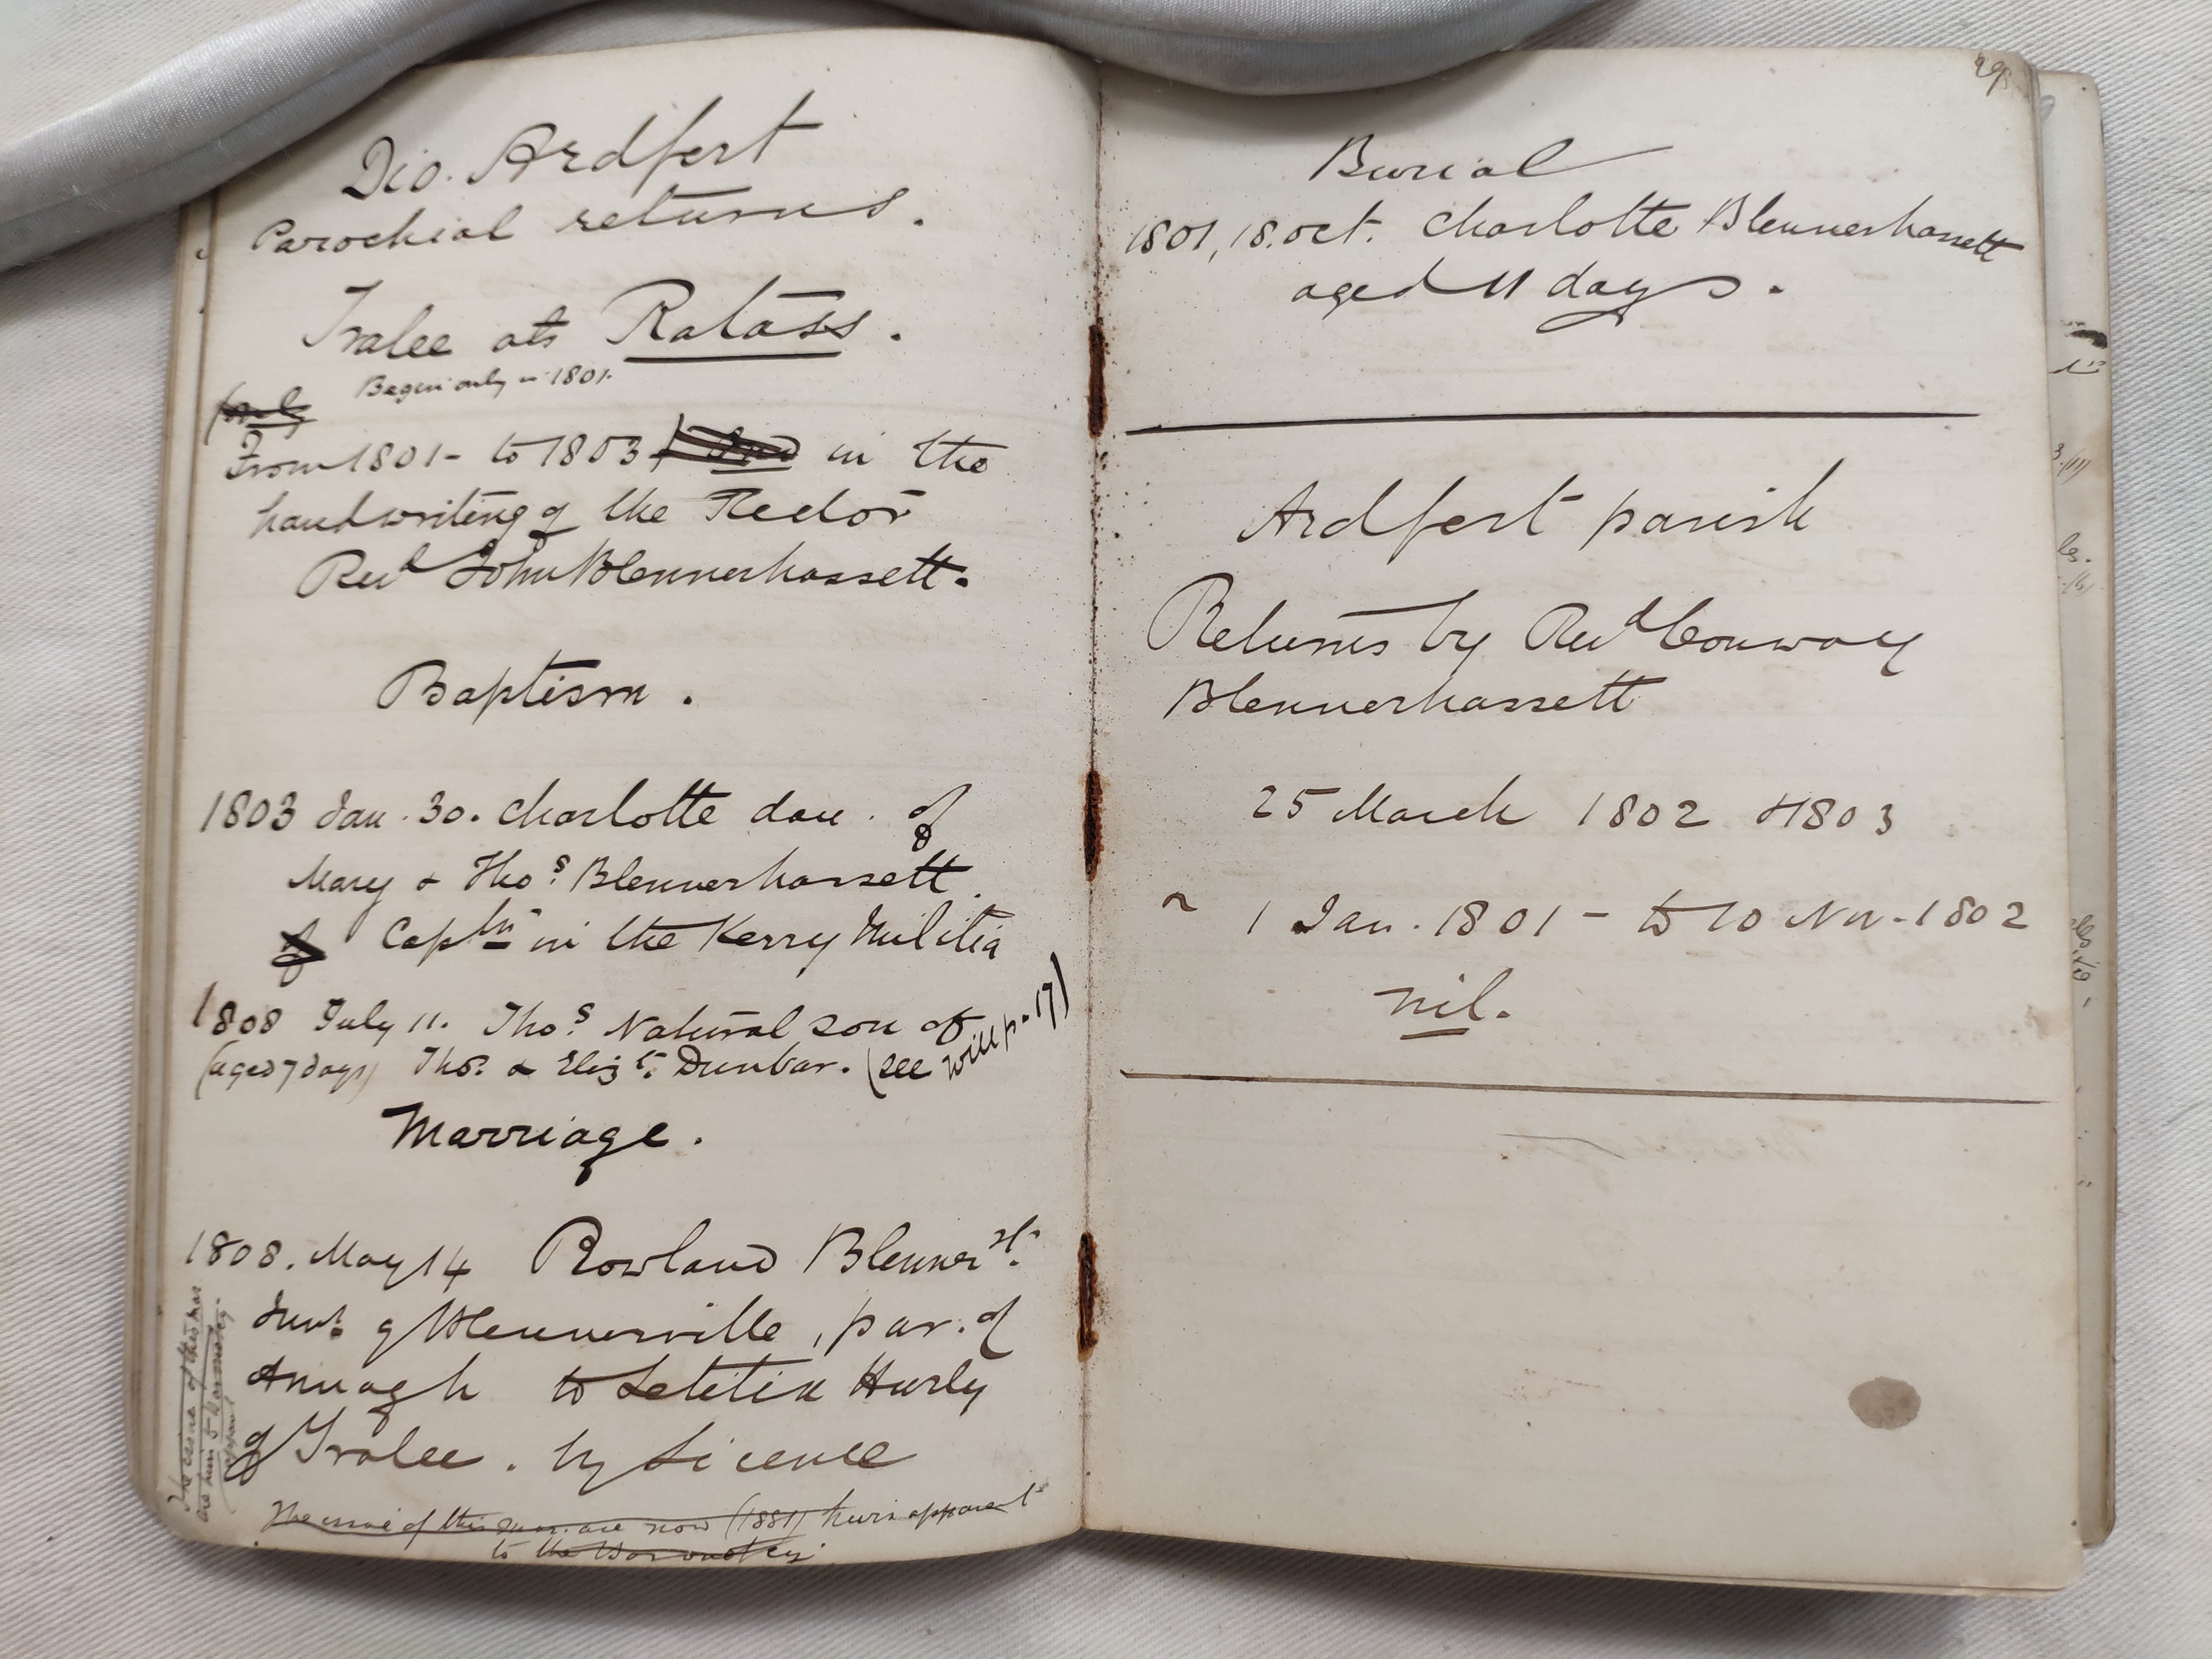 Dio. Ardfert
Parochial returns.
Tralee als Ratass.
Begin only in 1801.
(only
From 1801 - to 1803 in the
handwriting of the Rector
Revd John Blennerhassett.
Baptism.
1803 Jan. 30. Charlotte dau. of
Mary & Thos. Blennerhassett.
of Captn in the Kerry Militia
1808 July 11. Thos. Natural son of
(aged 7 days) Thos. & Elizth. Dunbar. (see will p. 17)
Marriage.
1808. May 14 Rowland Blennerst.
Junr. of Blennerville, par. of
Annagh to Letitia Hurly
of Tralee. by Licence
The issue of this mar. are now (1881) heirs apparent
to the Baronetcy
The issue of this mar
are now
apparent
29
Burial
1801, 18. Oct. Charlotte Blennerhassett
aged 11 days.
Ardfert parish
Returns by Revd Conway
Blennerhassett
25 March 1802 & 1803
~ 1 Jan. 1801 - to 10 Nov - 1802
nil.